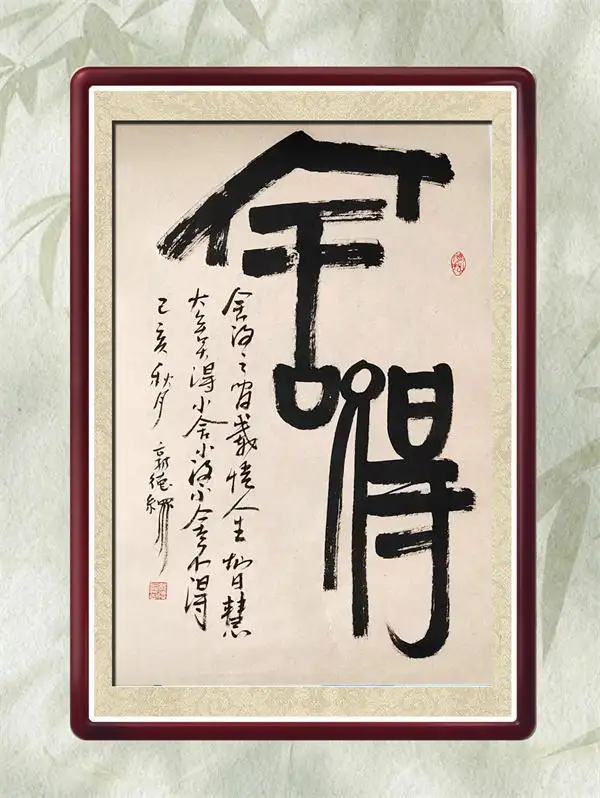 舍得
舍得之間人生智慧
大舍大得小舍小得不舍不得
己亥秋月 郭德綱